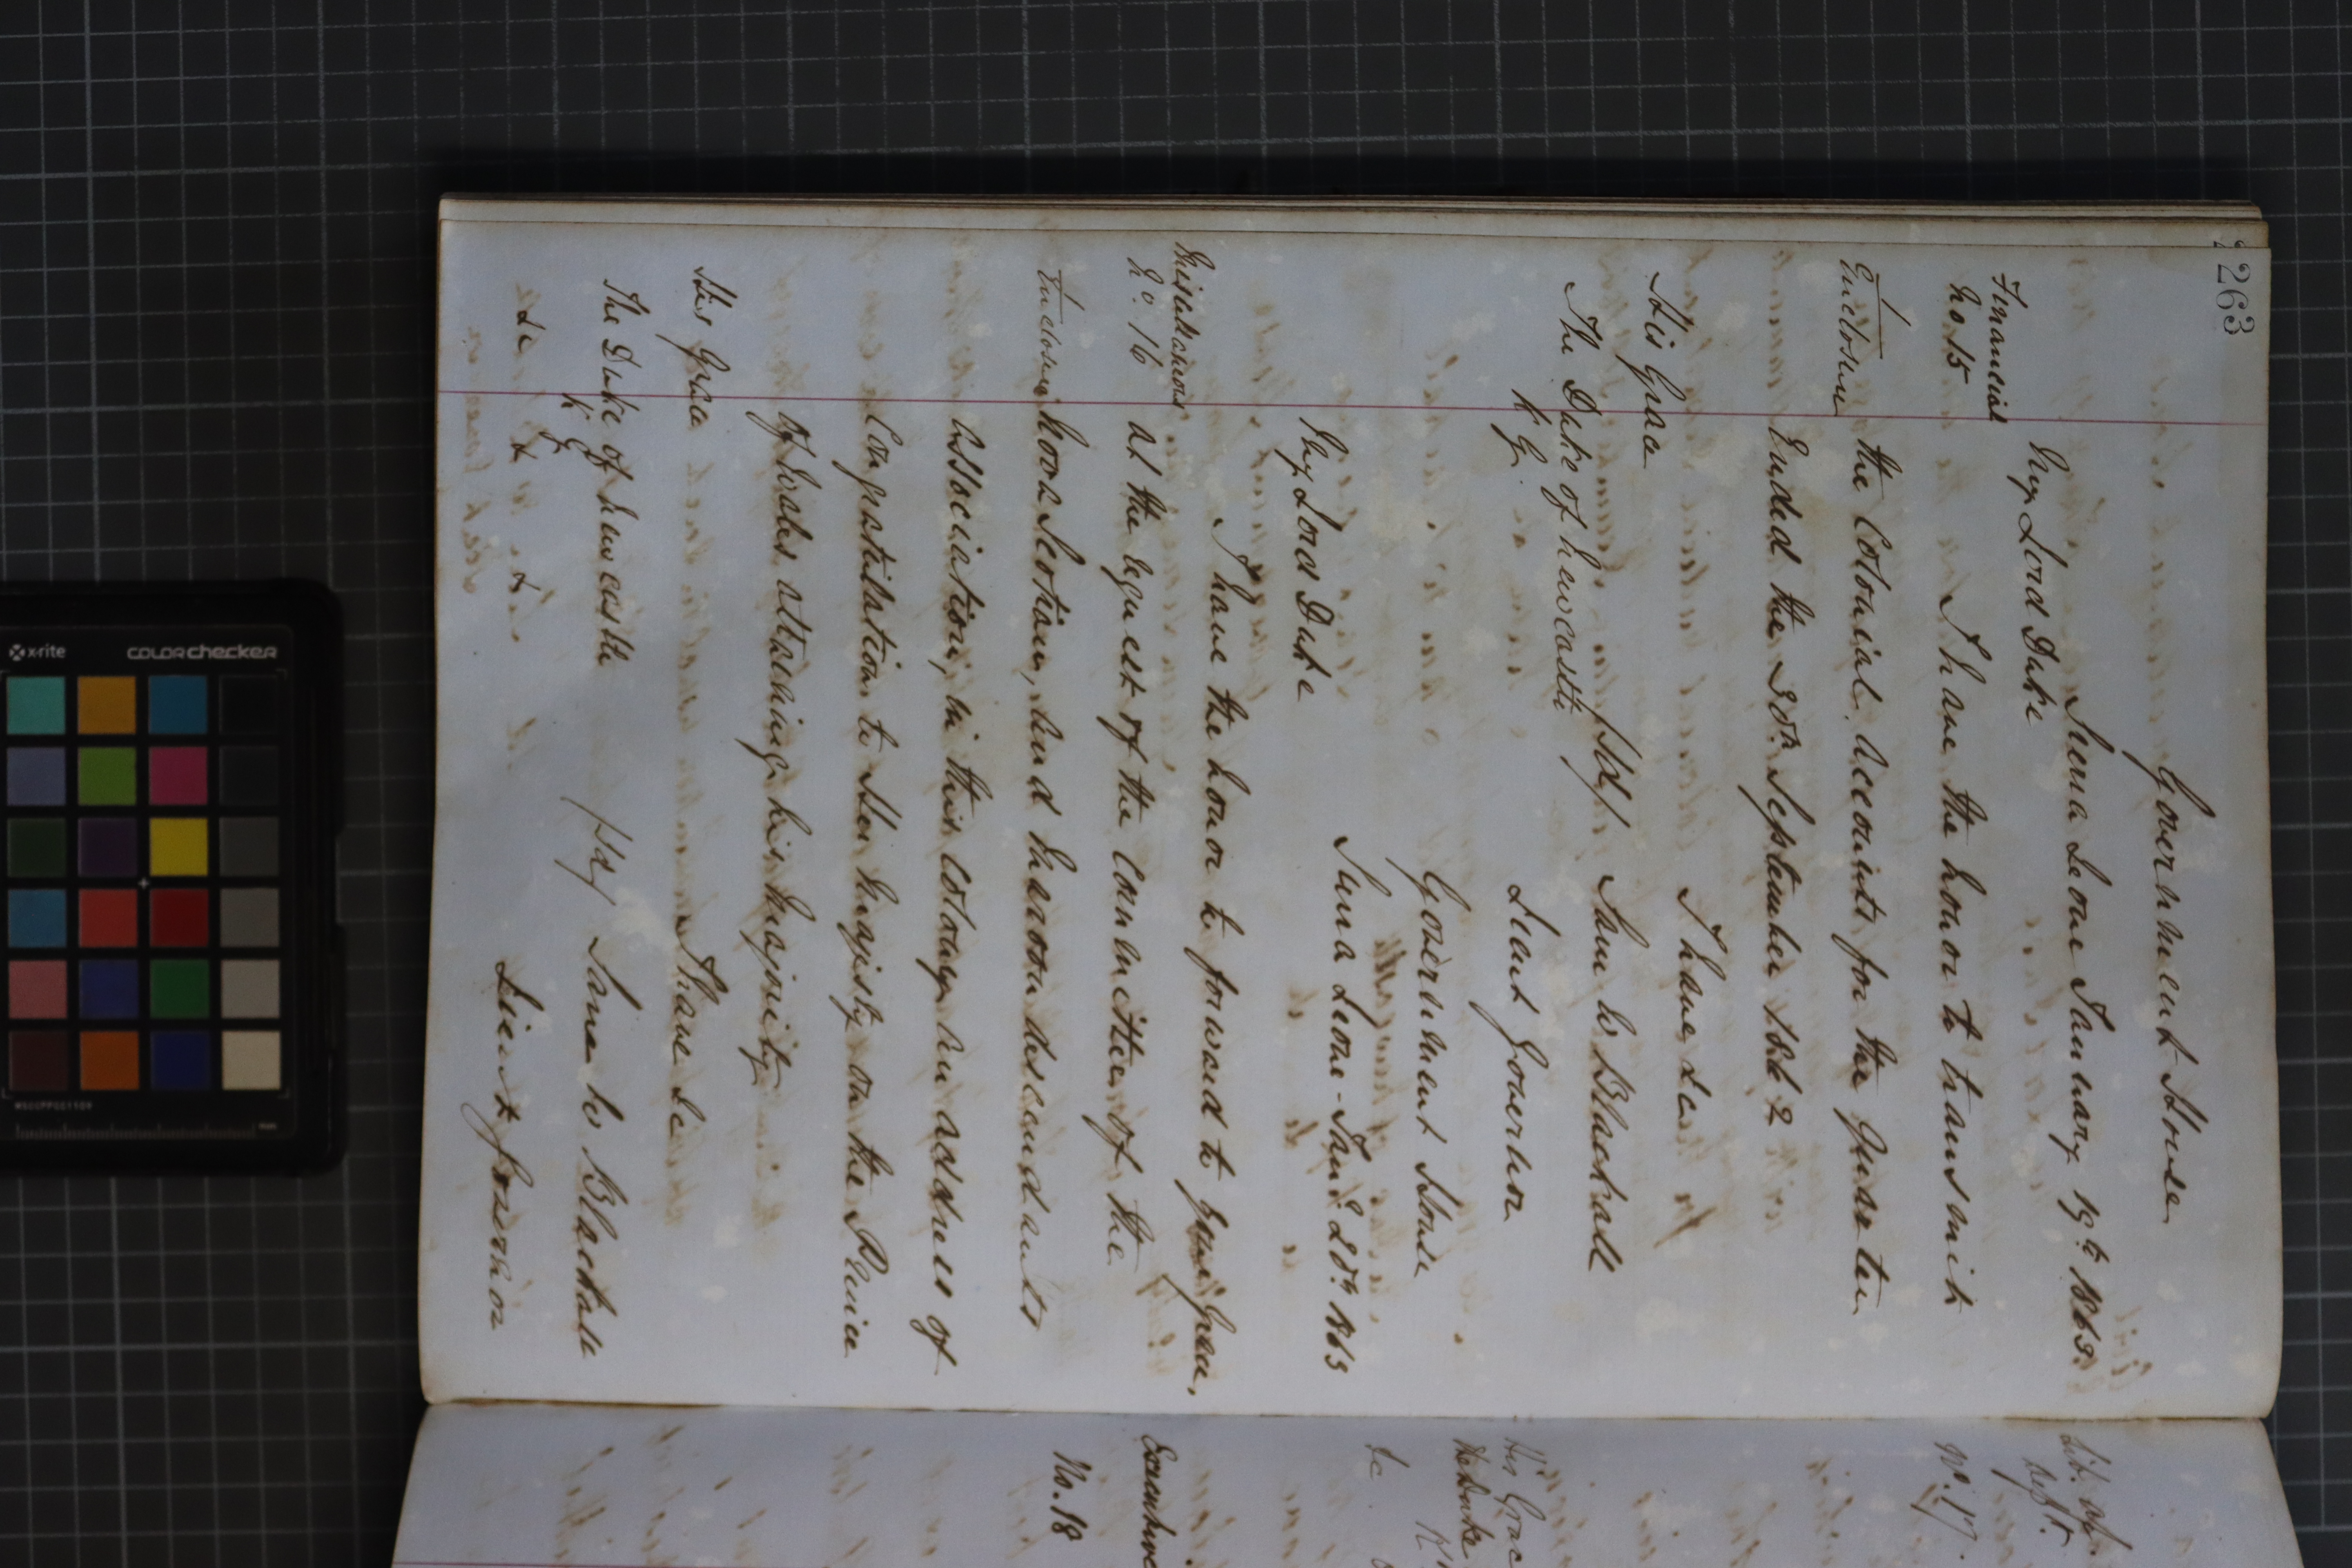 263
Government House
Sierra Leone January 19th 1863.
My Lord Duke
Financial
No 15
I have the honor to transmit
Enclosure
the Colonial Accounts for the Quarter
Ended the 30th September 1862
I have &c
His Grace
(sd) Sam W Blackall
The Duke of Newcastle
K. G.
Lieut Governor
Government House
Sierra Leone - Jany 20th 1863
My Lord Duke
I have the honor to forward to your Grace,
Miscellaneous
No. 16
at the request of the Committee of the
Enclosure
Nova Scotian, and Maroon descendants
Association, in this Colony an address of
Congratulation to Her Majesty on the Prince
of Wales attaining his majority
I have &c
His Grace
The Duke of Newcastle
K G
(sd) Sam W Blackall
&c & &
Lieut Governor
No. 17.
His Grac
The Duke
&c
No. 18
x-rite
colorchecker